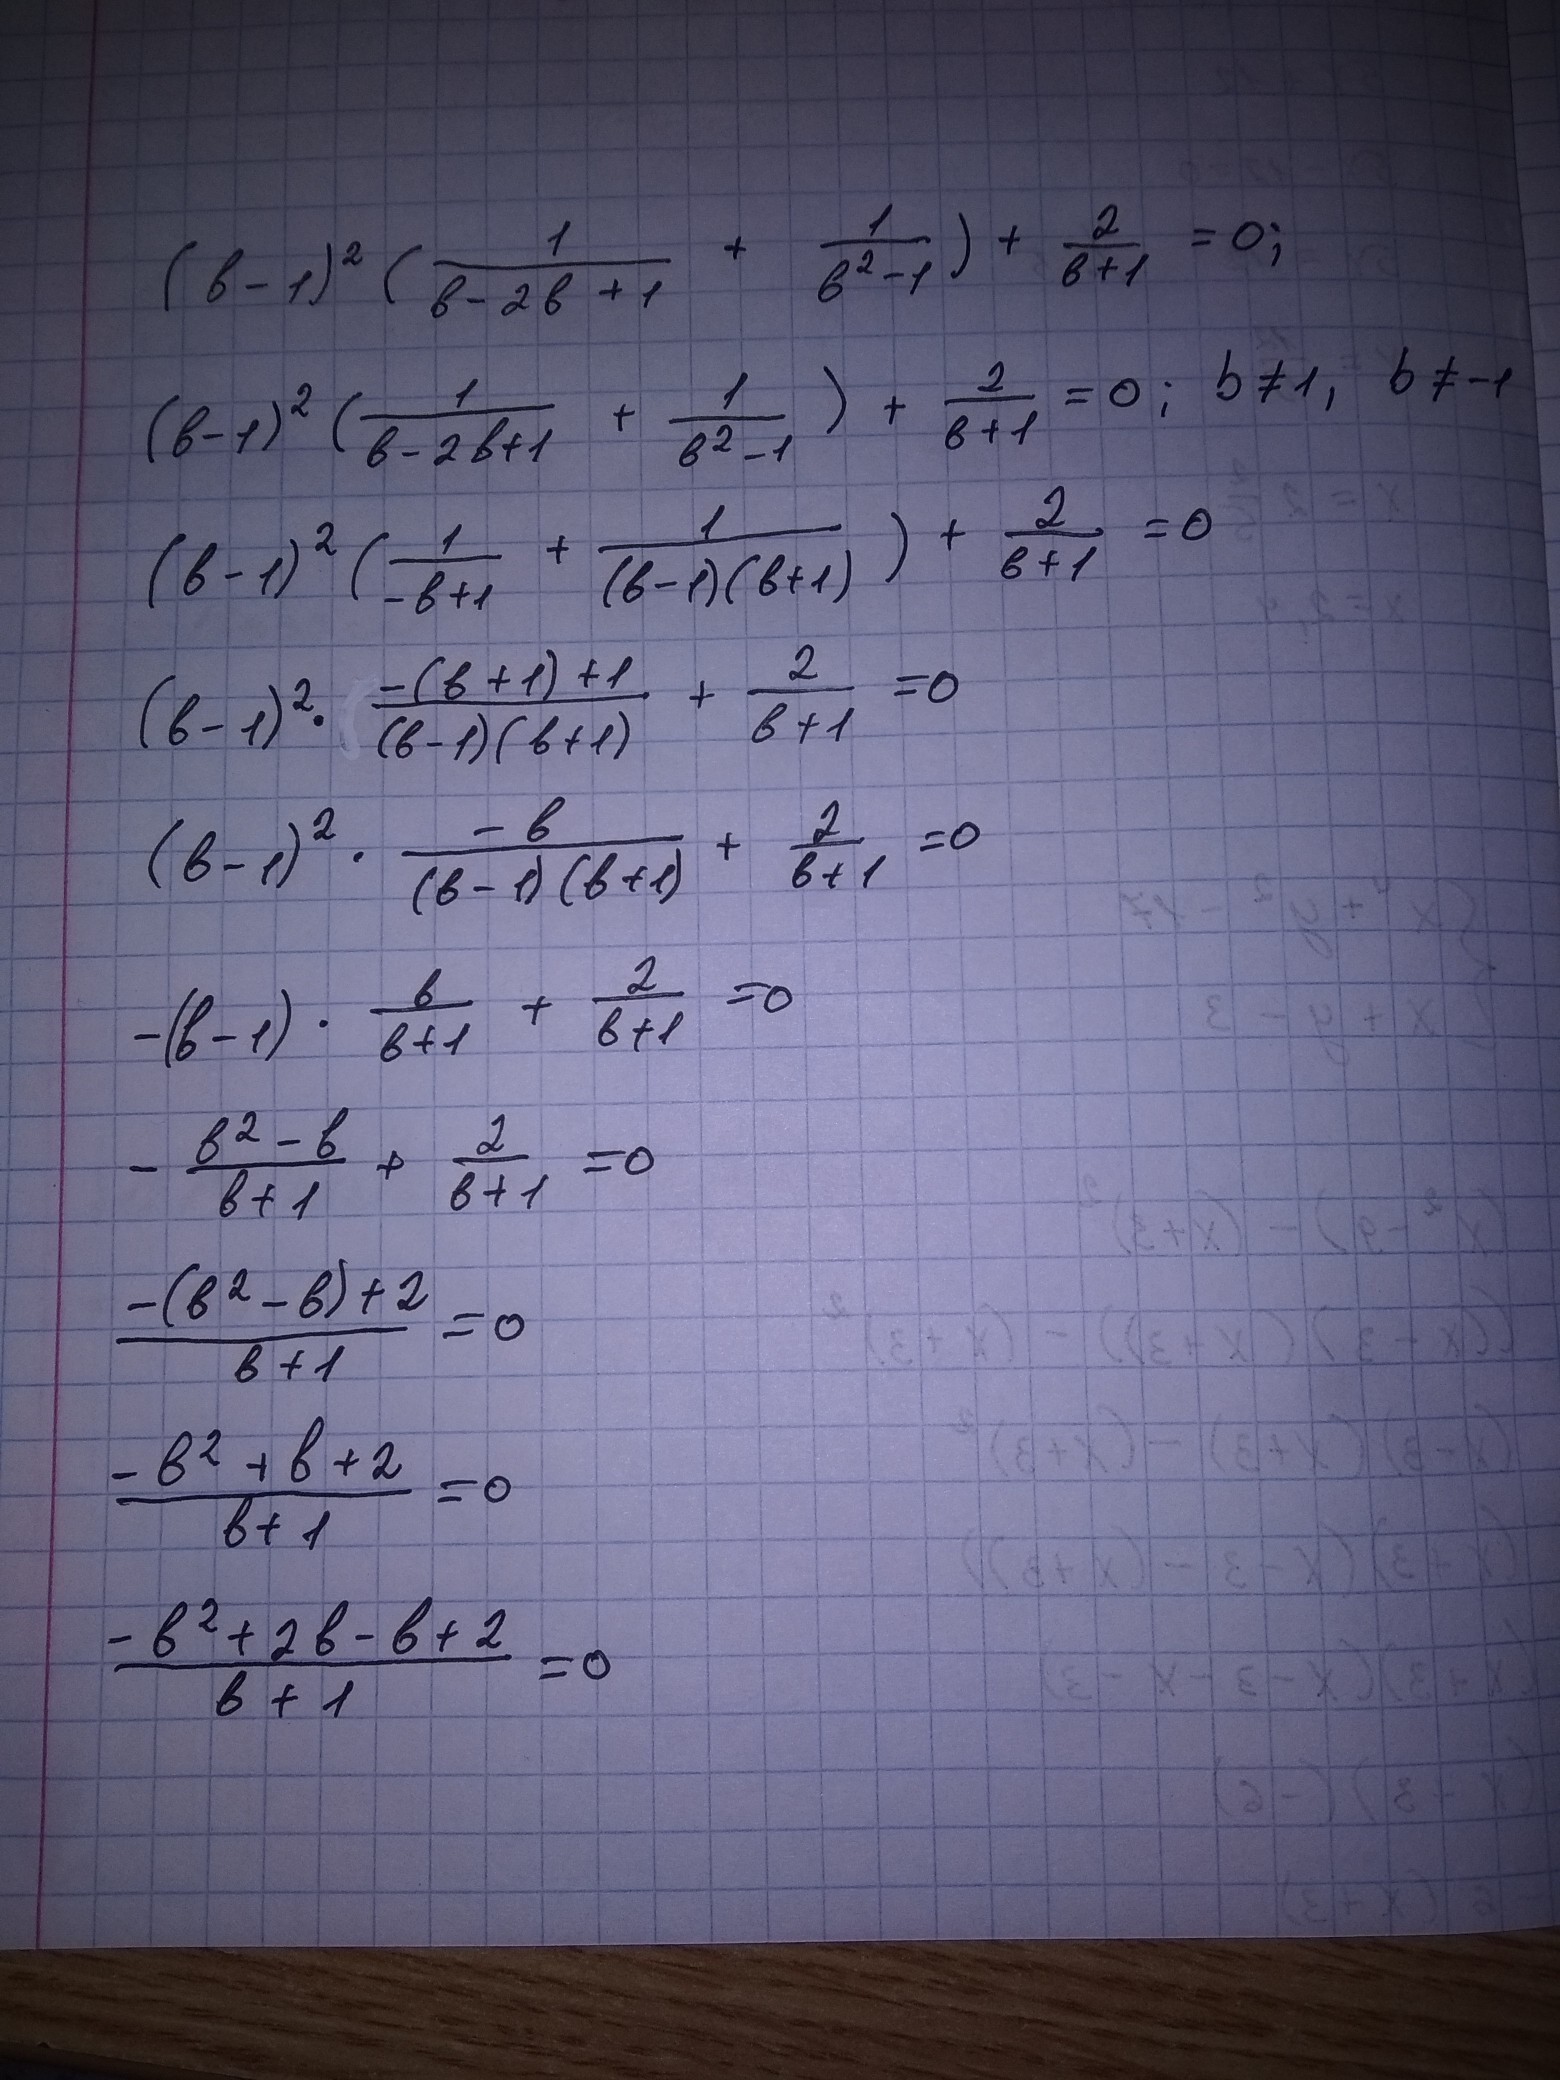 (b-1)² (1/(b-2b+1) + 1/(b²-1)) + 2/(b+1) =0;
(b-1)² (1/(b-2b+1) + 1/(b²-1)) + 2/(b+1) =0; b≠1, b≠-1
(b-1)² (1/(-b+1) + 1/((b-1)(b+1))) + 2/(b+1) =0
(b-1)² · (-(b+1)+1)/((b-1)(b+1)) + 2/(b+1) =0
(b-1)² · (-b)/((b-1)(b+1)) + 2/(b+1) =0
-(b-1) · b/(b+1) + 2/(b+1) =0
- (b²-b)/(b+1) + 2/(b+1) =0
(-(b²-b)+2)/(b+1) =0
(-b²+b+2)/(b+1) =0
(-b²+2b-b+2)/(b+1) =0